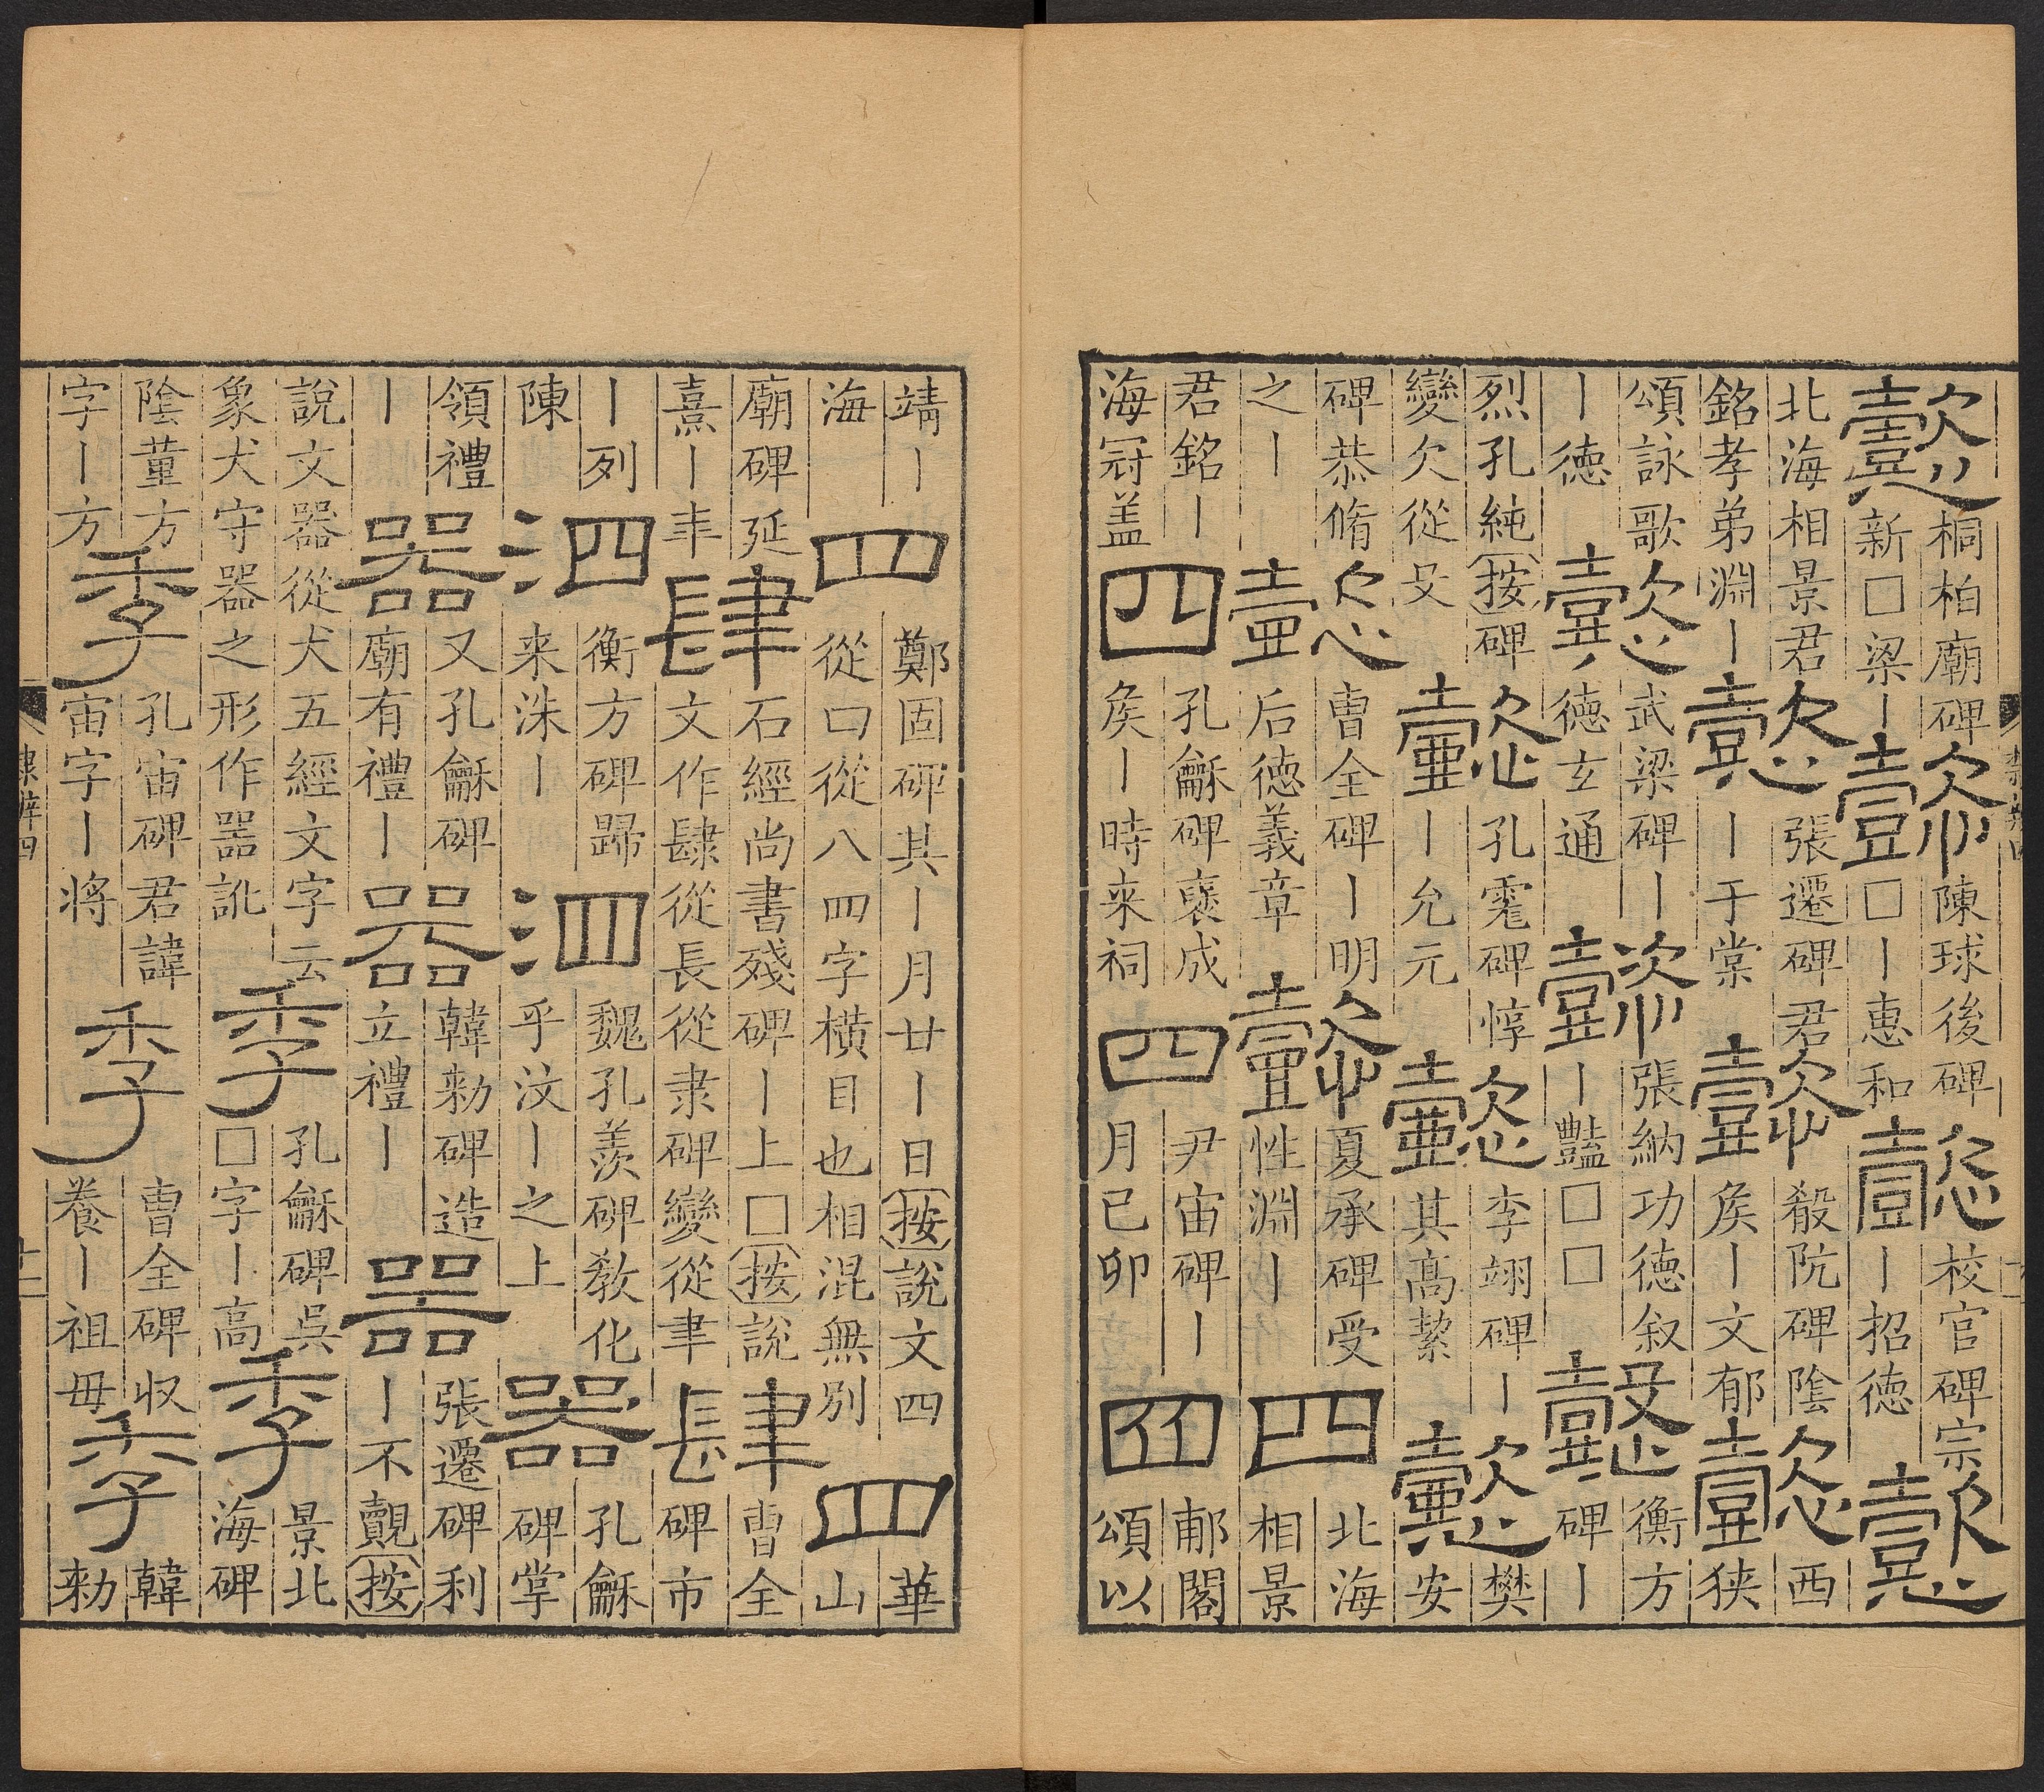 懿
桐柏廟碑
新□梁丨
懿
陳球後碑
□丨惠和
懿
校官碑宗
丨招徳
懿
北海相景君
銘孝弟淵丨
懿
張遷碑君
丨于棠
懿
殽阬碑陰
矦丨文郁
懿
西
狭
頌詠歌
丨徳
懿
武梁碑丨
徳玄通
懿
張納功徳叙
丨豔□□
懿
衡方
碑丨
烈孔純按碑
變欠從殳
懿
孔彪碑惇
丨允元
懿
李翊碑丨
其髙絜
懿
樊
安
碑恭脩
之丨
懿
曹全碑丨明
后徳義章
懿
夏承碑受
性淵丨
四
北海
相景
君銘丨
海冠盖
四
孔龢碑襃成
矦丨時来祠
四
尹宙碑丨
月己卯
四
郙閣
頌以
靖丨
海
四
鄭固碑其丨月廿丨日按說文四
從口從八四字横目也相混無別
四
華
山
廟碑延
熹丨年
肆
石經尚書殘碑丨上□按說
文作肆從長從隶碑變從聿
肆
曹全
碑市
丨列
陳
泗
衡方碑歸
来洙丨
泗
魏孔羨碑敎化
乎汶丨之上
器
孔龢
碑掌
領禮
丨
器
又孔龢碑
廟有禮丨
器
韓勑碑造
立禮丨
器
張遷碑利
丨不覿按
說文器從犬五經文字云
象犬守器之形作噐訛
季
孔龢碑吳
□字丨高
季
景北
海碑
陰董方
字丨方
季
孔宙碑君諱
宙字丨将
季
曹全碑収
養丨祖毋
季
韓
勑
隸辨四